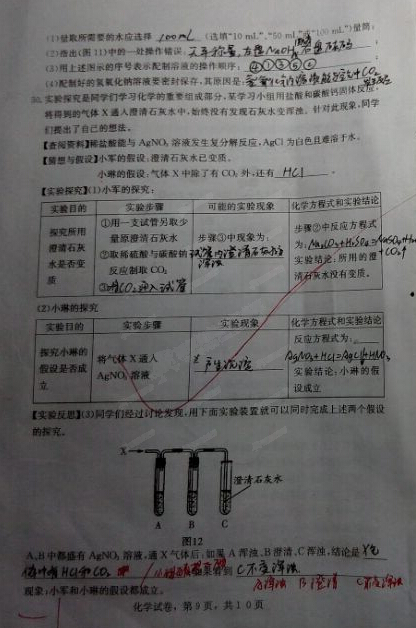 (1)量取所需要的水应选择 100mL (选填"10 mL"、"50 mL"或"100 mL")量筒;
(2)指出(图11)中的一处操作错误:
(3)用上述图示的序号表示配制溶液的操作顺序:
(4)配制好的氢氧化钠溶液要密封保存,其原因是:
30. 实验探究是同学们学习化学的重要组成部分,某学习小组用盐酸和碳酸钙固体反应,
将得到的气体X通入澄清石灰水中,始终没有发现石灰水变浑浊。针对此现象,同学
们提出了自己的想法。
【查阅资料】稀盐酸能与AgNO₃溶液发生复分解反应,AgCl为白色且难溶于水。
【猜想与假设】小军的假设:澄清石灰水已变质。
小琳的假设:气体X中除了有CO₂外,还有 HCl 。
【实验探究】(1)小军的探究:
实验目的 实验步骤 可能的实验现象 化学方程式和实验结论
探究所用澄清石灰水是否变质
①用一支试管另取少量原澄清石灰水
②取稀硫酸与碳酸钠反应制取CO₂
③将CO₂通入试管
步骤③中现象为:
试管内澄清石灰水浑浊
步骤②中反应方程式为:
实验结论:所用的澄清石灰水没有变质。
(2)小琳的探究
实验目的 实验步骤 实验现象 化学方程式和实验结论
探究小琳的假设是否成立
将气体X通入AgNO₃溶液
产生沉淀
反应方程式为:
AgNO₃+HCl=AgCl↓+HNO₃
实验结论:小琳的假设成立
【实验反思】(3)同学们经过讨论发现,用下面实验装置就可以同时完成上述两个假设
的探究。
X
澄清石灰水
A B C
图12
A、B中都盛有AgNO₃溶液,通X气体后:如果A浑浊、B澄清、C浑浊,结论是
C不变浑浊
A浑浊 B澄清 C不变浑浊
现象,小军和小琳的假设都成立。
化学试卷,第9页,共10页